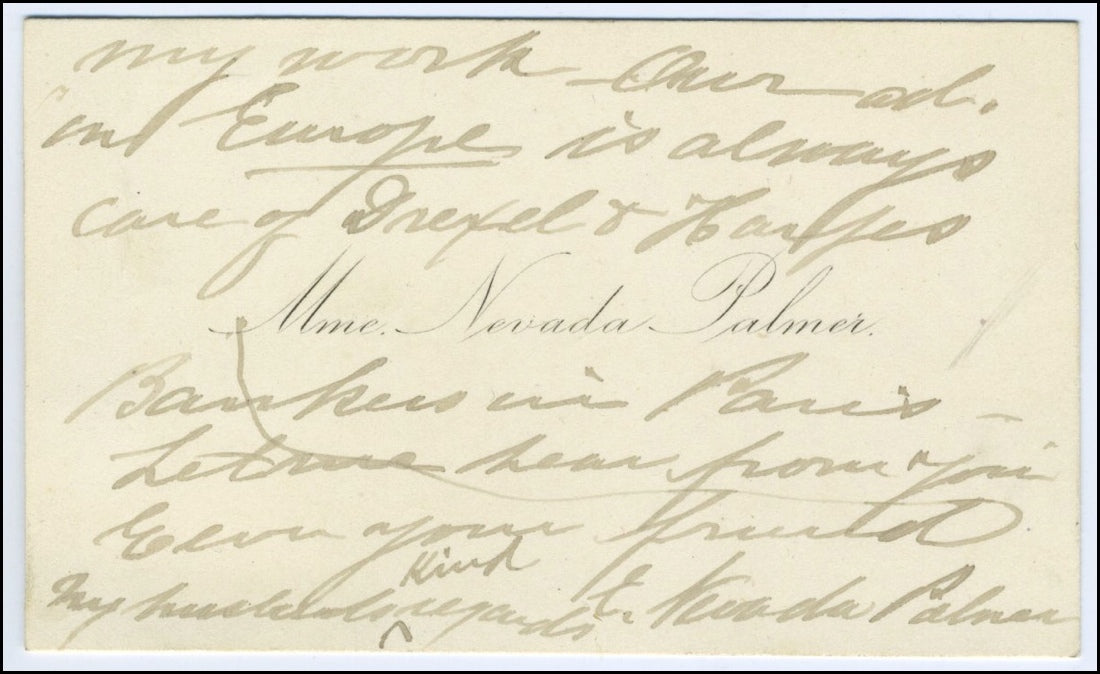 my work – Our ad.
in Europe is always
care of Drexel & Harjes
Mme. Nevada Palmer.
Bankers in Paris –
Let me hear from you
Ever your friend
Kind
My husband's regards E. Nevada Palmer